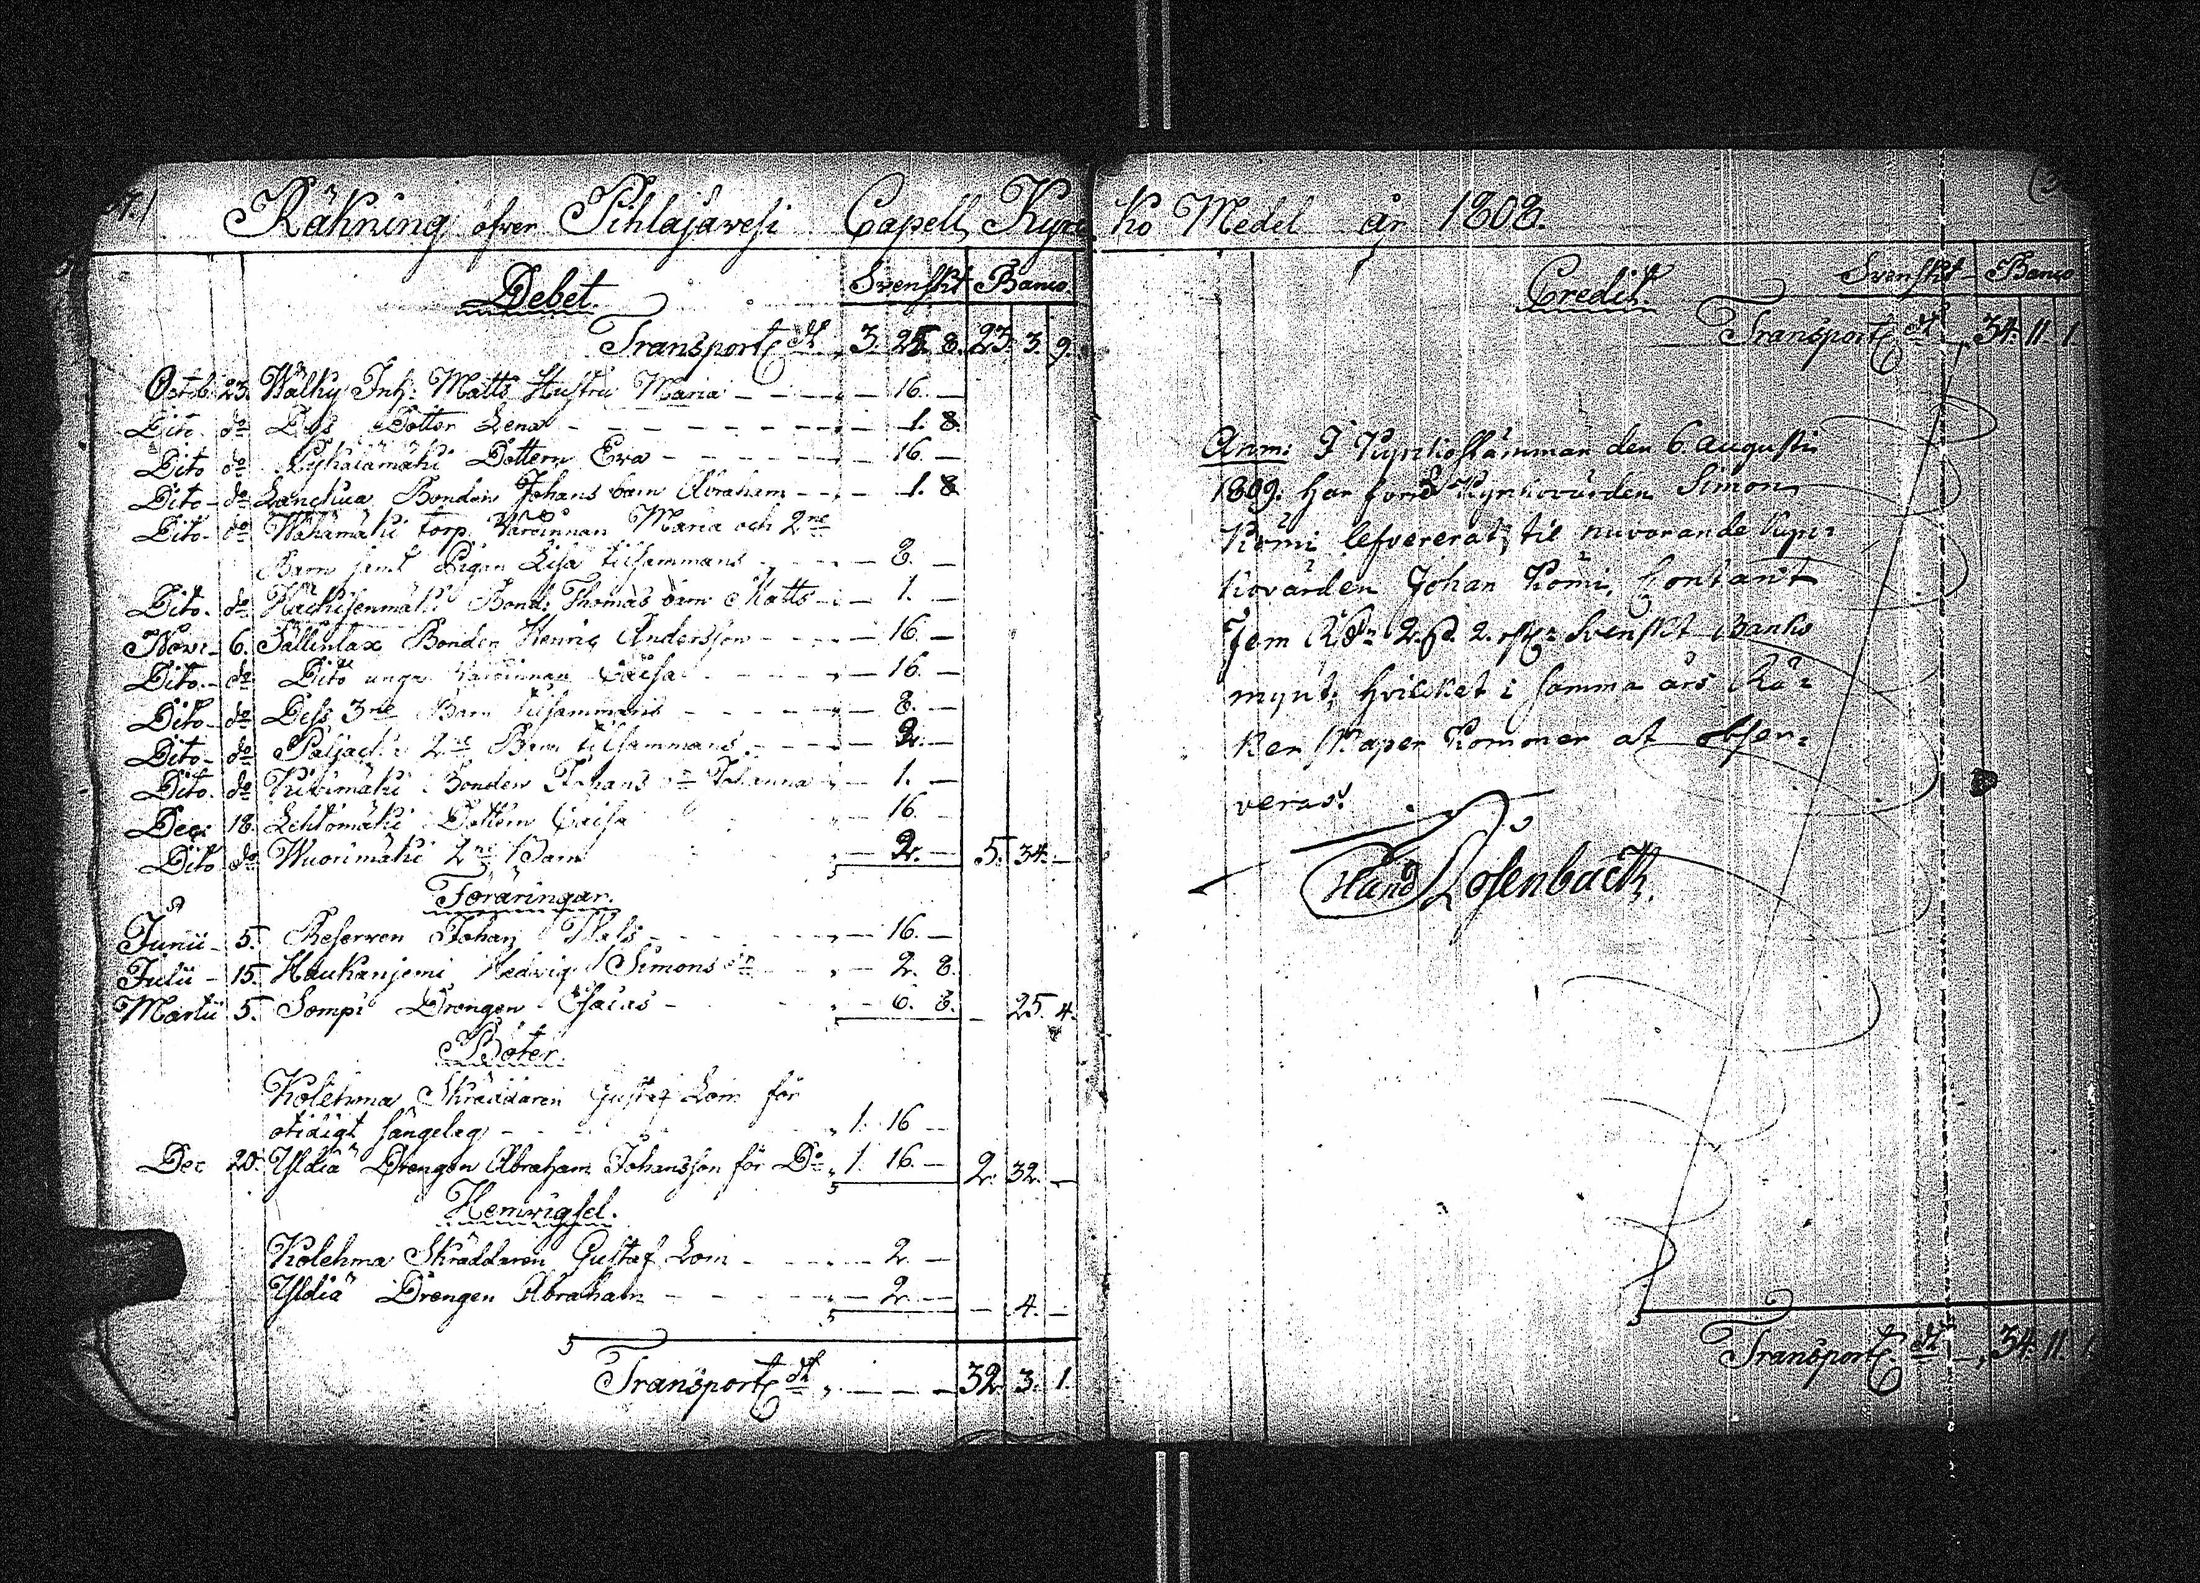 Räkning öfver Pihlajavesi Capell Kyrc ko Medel år 1808.
Debet. Svenskt Banco
Transport dt „ 3. 25. 8. 23. 3. 9.
Octob. 23. Wälky Inh: Matts Hustru Maria — 16. —
Dito do Dess Dotter Lena — 1. 8.
Dito do Dottern Eva — 16. —
Dito do Bonden Johans barn Abraham — 1. 8
Dito do Wähämäki torp. Värdinnan Maria och 2ne
Barn jemt Pigan Lisa tilsammans — 8. —
Dito do Bond: Thomas barn Matts — 1. —
Novr 6. Sällinlax Bonden Henric Andersson — 16. —
Dito do Dito unga Värdinnan Caisa — 16. —
Dito do Dess 3ne Barn tilsammans — 8. —
Dito do 2ne Barn tilsammans — 2. —
Dito do Kivimäki Bonden Johans Johanna — 1. —
Decr 18. Lehtomäki Dottern Caisa — 16. —
Dito do Wuorimäki 2ne Barn — 2. — 5. 34. —
Föräringar.
Junii 5. Reserven Johan — 16. —
Julii 15. Haukanjemi Hedvig Simons dr — 2. 8.
Martii 5. Sompi Drengen Esaias — 6. 8. — 25. 4.
Böter.
Kolehma Skräddaren Gustaf Lom för
otidigt sängelag — 1. 16 —
Dec 20. Yldiä Drengen Abraham Johansson för Do 1. 16. — 2. 32. —
Hemvigsel.
Kolehma Skräddaren Gustaf Lom — 2 —
Yldiä Drengen Abraham — 2 — — 4. —
Transport dt „ — — — 32. 3. 1.
Credit. Svenskt Banco
Transport dt „ 34. 11. 1.
Anm: I Kyrkostämman den 6. augusti
1809. har förra Kyrkovärden Simon
Kömi lefvererat til nuvarande Kyr:
kovärden Johan Kömi, Contant
Fem Rdr 2. sk 2. rst: Svenskt Banko
mynt; hvilcket i samma års Rä:
kenskaper kommer at obser:
veras.
Rosenback.
Transport dt — „ 34. 11.